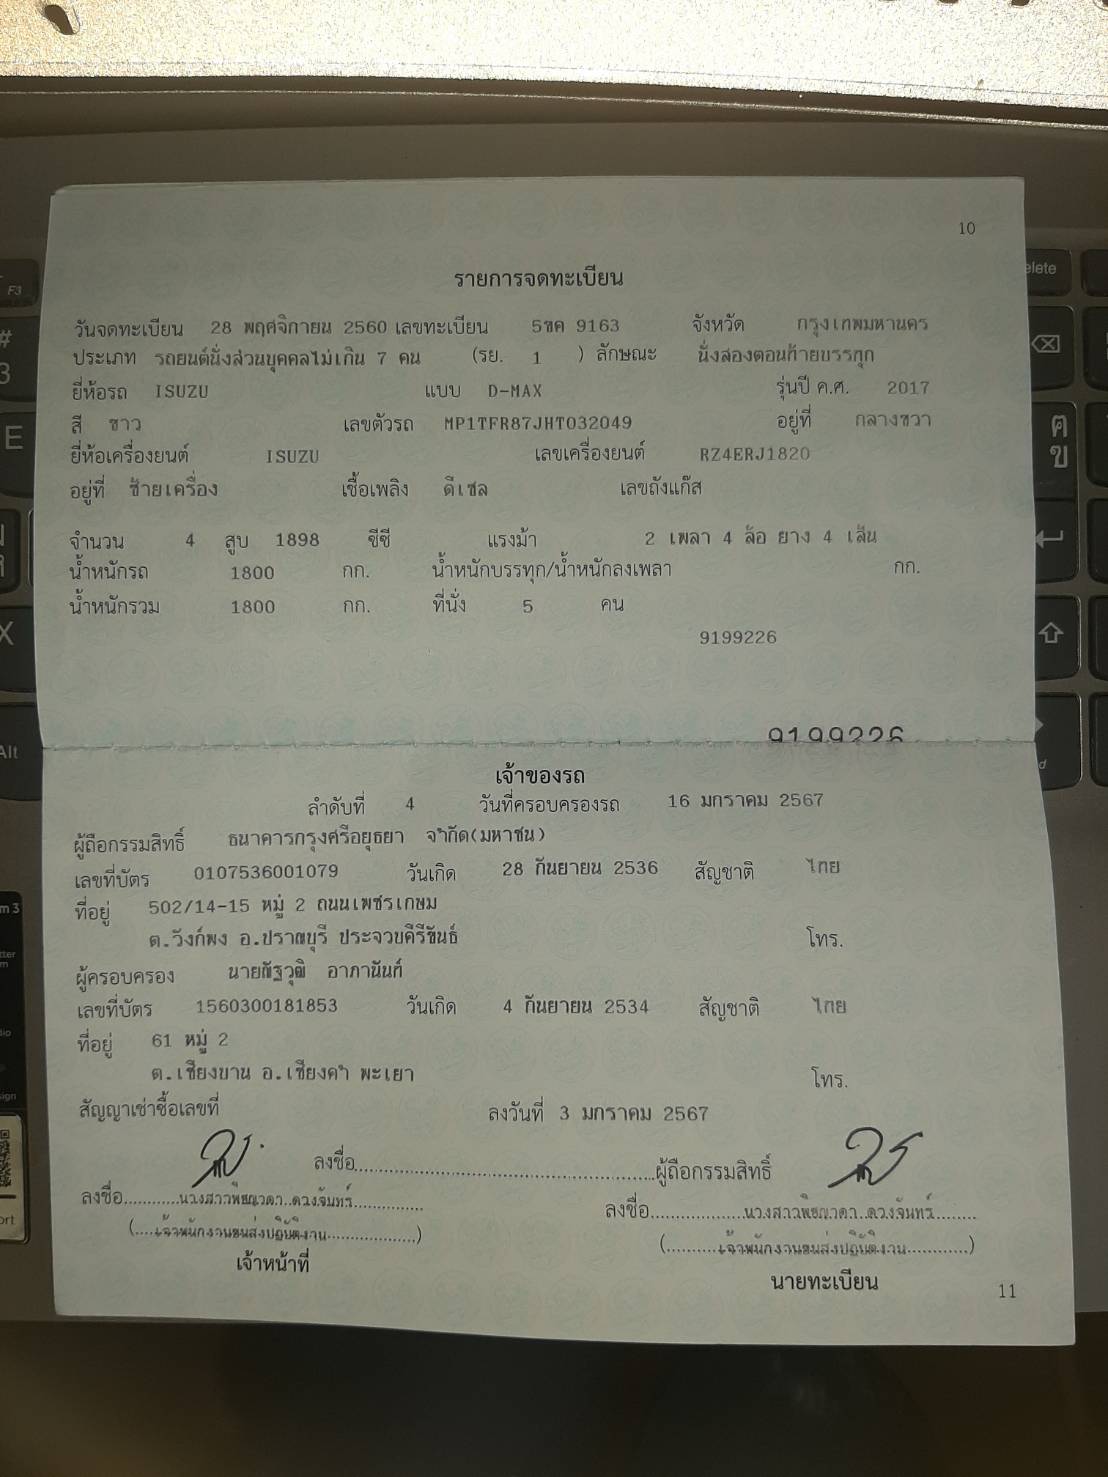 10
รายการจดทะเบียน
วันจดทะเบียน 28 พฤศจิกายน 2560 เลขทะเบียน 5ขค 9163 จังหวัด กรุงเทพมหานคร
ประเภท รถยนต์นั่งส่วนบุคคลไม่เกิน 7 คน (รย. 1 ) ลักษณะ นั่งสองตอนท้ายบรรทุก
ยี่ห้อรถ ISUZU แบบ D-MAX รุ่นปี ค.ศ. 2017
สี ขาว เลขตัวรถ MP1TFR87JHT032049 อยู่ที่ กลางขวา
ยี่ห้อเครื่องยนต์ ISUZU เลขเครื่องยนต์ RZ4ERJ1820
อยู่ที่ ซ้ายเครื่อง เชื้อเพลิง ดีเซล เลขถังแก๊ส
จำนวน 4 สูบ 1898 ซีซี แรงม้า 2 เพลา 4 ล้อ ยาง 4 เส้น
น้ำหนักรถ 1800 กก. น้ำหนักบรรทุก/น้ำหนักลงเพลา กก.
น้ำหนักรวม 1800 กก. ที่นั่ง 5 คน
9199226
9199226
เจ้าของรถ
ลำดับที่ 4 วันที่ครอบครองรถ 16 มกราคม 2567
ผู้ถือกรรมสิทธิ์ ธนาคารกรุงศรีอยุธยา จำกัด(มหาชน)
เลขที่บัตร 0107536001079 วันเกิด 28 กันยายน 2536 สัญชาติ ไทย
ที่อยู่ 502/14-15 หมู่ 2 ถนนเพชรเกษม
ต.วังก์พง อ.ปราณบุรี ประจวบคีรีขันธ์ โทร.
ผู้ครอบครอง นายณัฐวุฒิ อาภานันท์
เลขที่บัตร 1560300181853 วันเกิด 4 กันยายน 2534 สัญชาติ ไทย
ที่อยู่ 61 หมู่ 2
ต.เชียงบาน อ.เชียงคำ พะเยา โทร.
สัญญาเช่าซื้อเลขที่ ลงวันที่ 3 มกราคม 2567
ลงชื่อ ผู้ถือกรรมสิทธิ์
ลงชื่อ นางสาวพิชญาดา ดวงจันทร์ ลงชื่อ นางสาวพิชญาดา ดวงจันทร์
(เจ้าพนักงานขนส่งปฏิบัติงาน) (เจ้าพนักงานขนส่งปฏิบัติงาน)
เจ้าหน้าที่ นายทะเบียน
11